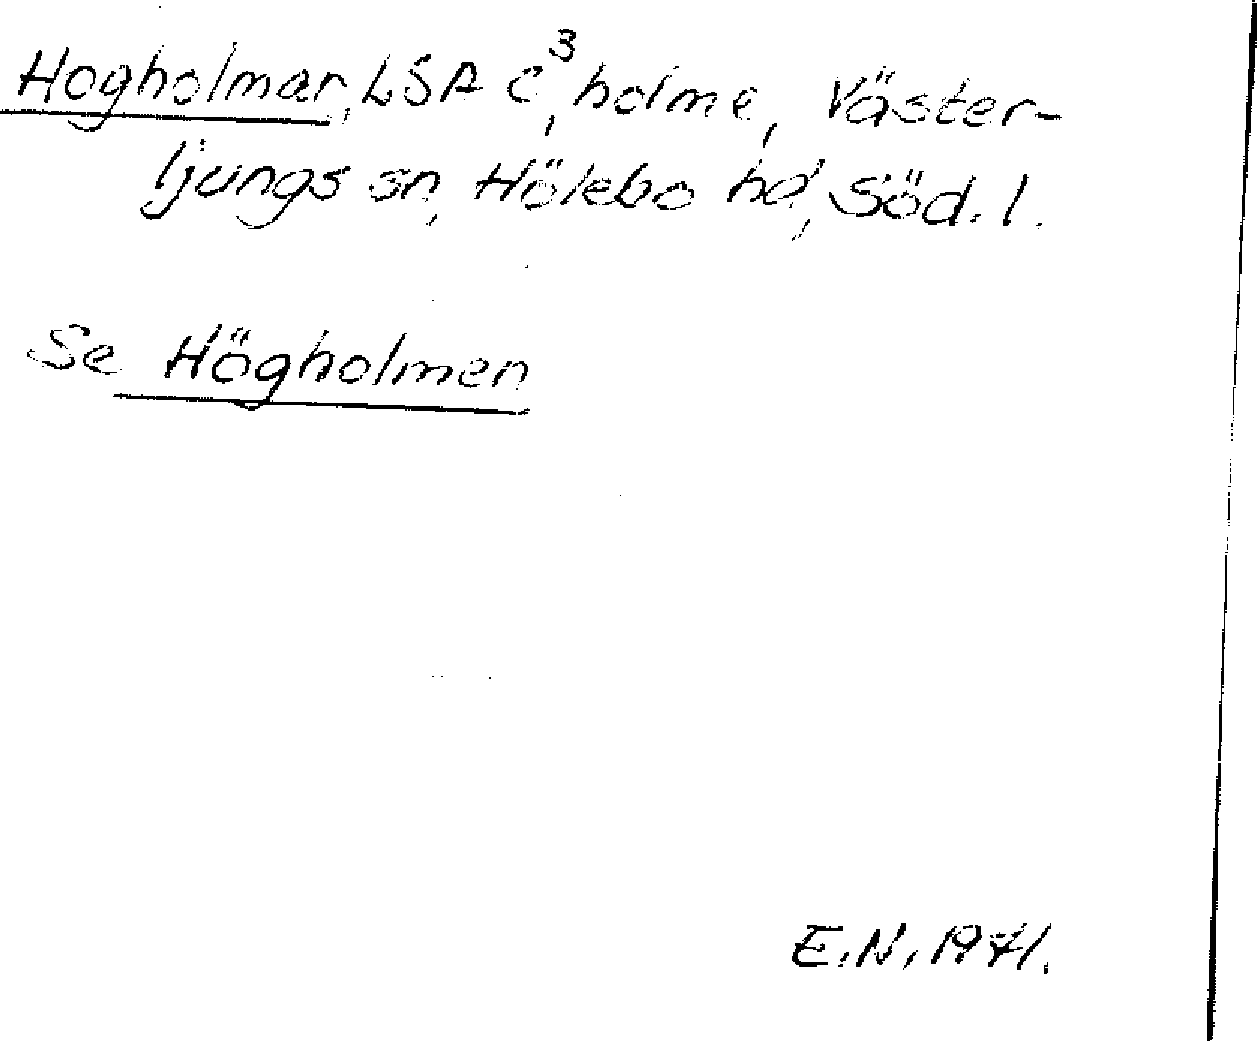 Hogholmar, LSA C³, holme, Väster-
ljungs sn, Hölebo hd, Söd. l.
Se Högholmen
E.N. 1971.